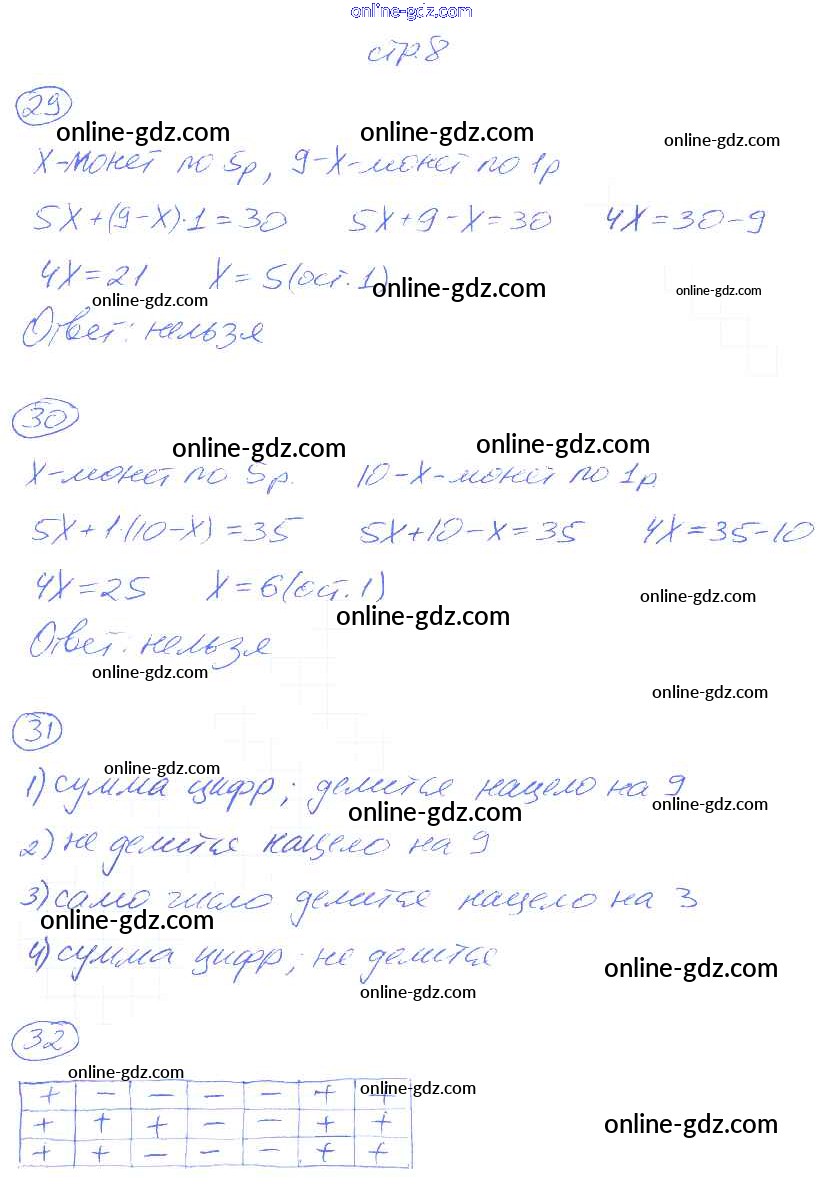 online-gdz.com
стр.8
29
online-gdz.com online-gdz.com online-gdz.com
X-монет по 5р, 9-X-монет по 1р
5X+(9-X)·1=30 5X+9-X=30 4X=30-9
4X=21 X=5(ост.1)
online-gdz.com online-gdz.com online-gdz.com
Ответ: нельзя
30
online-gdz.com online-gdz.com
X-монет по 5р. 10-X-монет по 1р
5X+1·(10-X)=35 5X+10-X=35 4X=35-10
4X=25 X=6(ост.1)
online-gdz.com online-gdz.com
Ответ: нельзя
online-gdz.com online-gdz.com
31
online-gdz.com
1) сумма цифр; делится нацело на 9
online-gdz.com online-gdz.com
2) не делится нацело на 9
3) само число делится нацело на 3
online-gdz.com
4) сумма цифр; не делится
online-gdz.com online-gdz.com
32
online-gdz.com online-gdz.com
+ - - - - + +
+ + + - - + +
online-gdz.com
+ + - - - + +